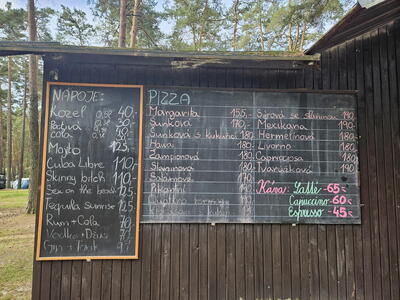 NÁPOJE:
Kozel 0,5l 40,-
Pečivá 0,3l 30,-
Cola 40,-
Mojito 125,-
Cuba Libre 110,-
Skinny bitch 110,-
Sex on the beach 125,-
Tequila sunrise 125,-
Rum+Cola 70,-
Vodka+Džus 70,-
PIZZA
Margarita 155,-
Šunková 170,-
Šunková s kukuřicí 180,-
Havai 180,-
Žampionová 180,-
Slaninová 180,-
Salámová
Pikantní
Quattro
Sýrová se slaninou 190,-
Mexikana 190,-
Hermelínová 180,-
Livorno 180,-
Capriciosa 180,-
Tvarůžková 190,-
Káva: Latte - 65,-
Capuccino 60,-
Espresso 45,-